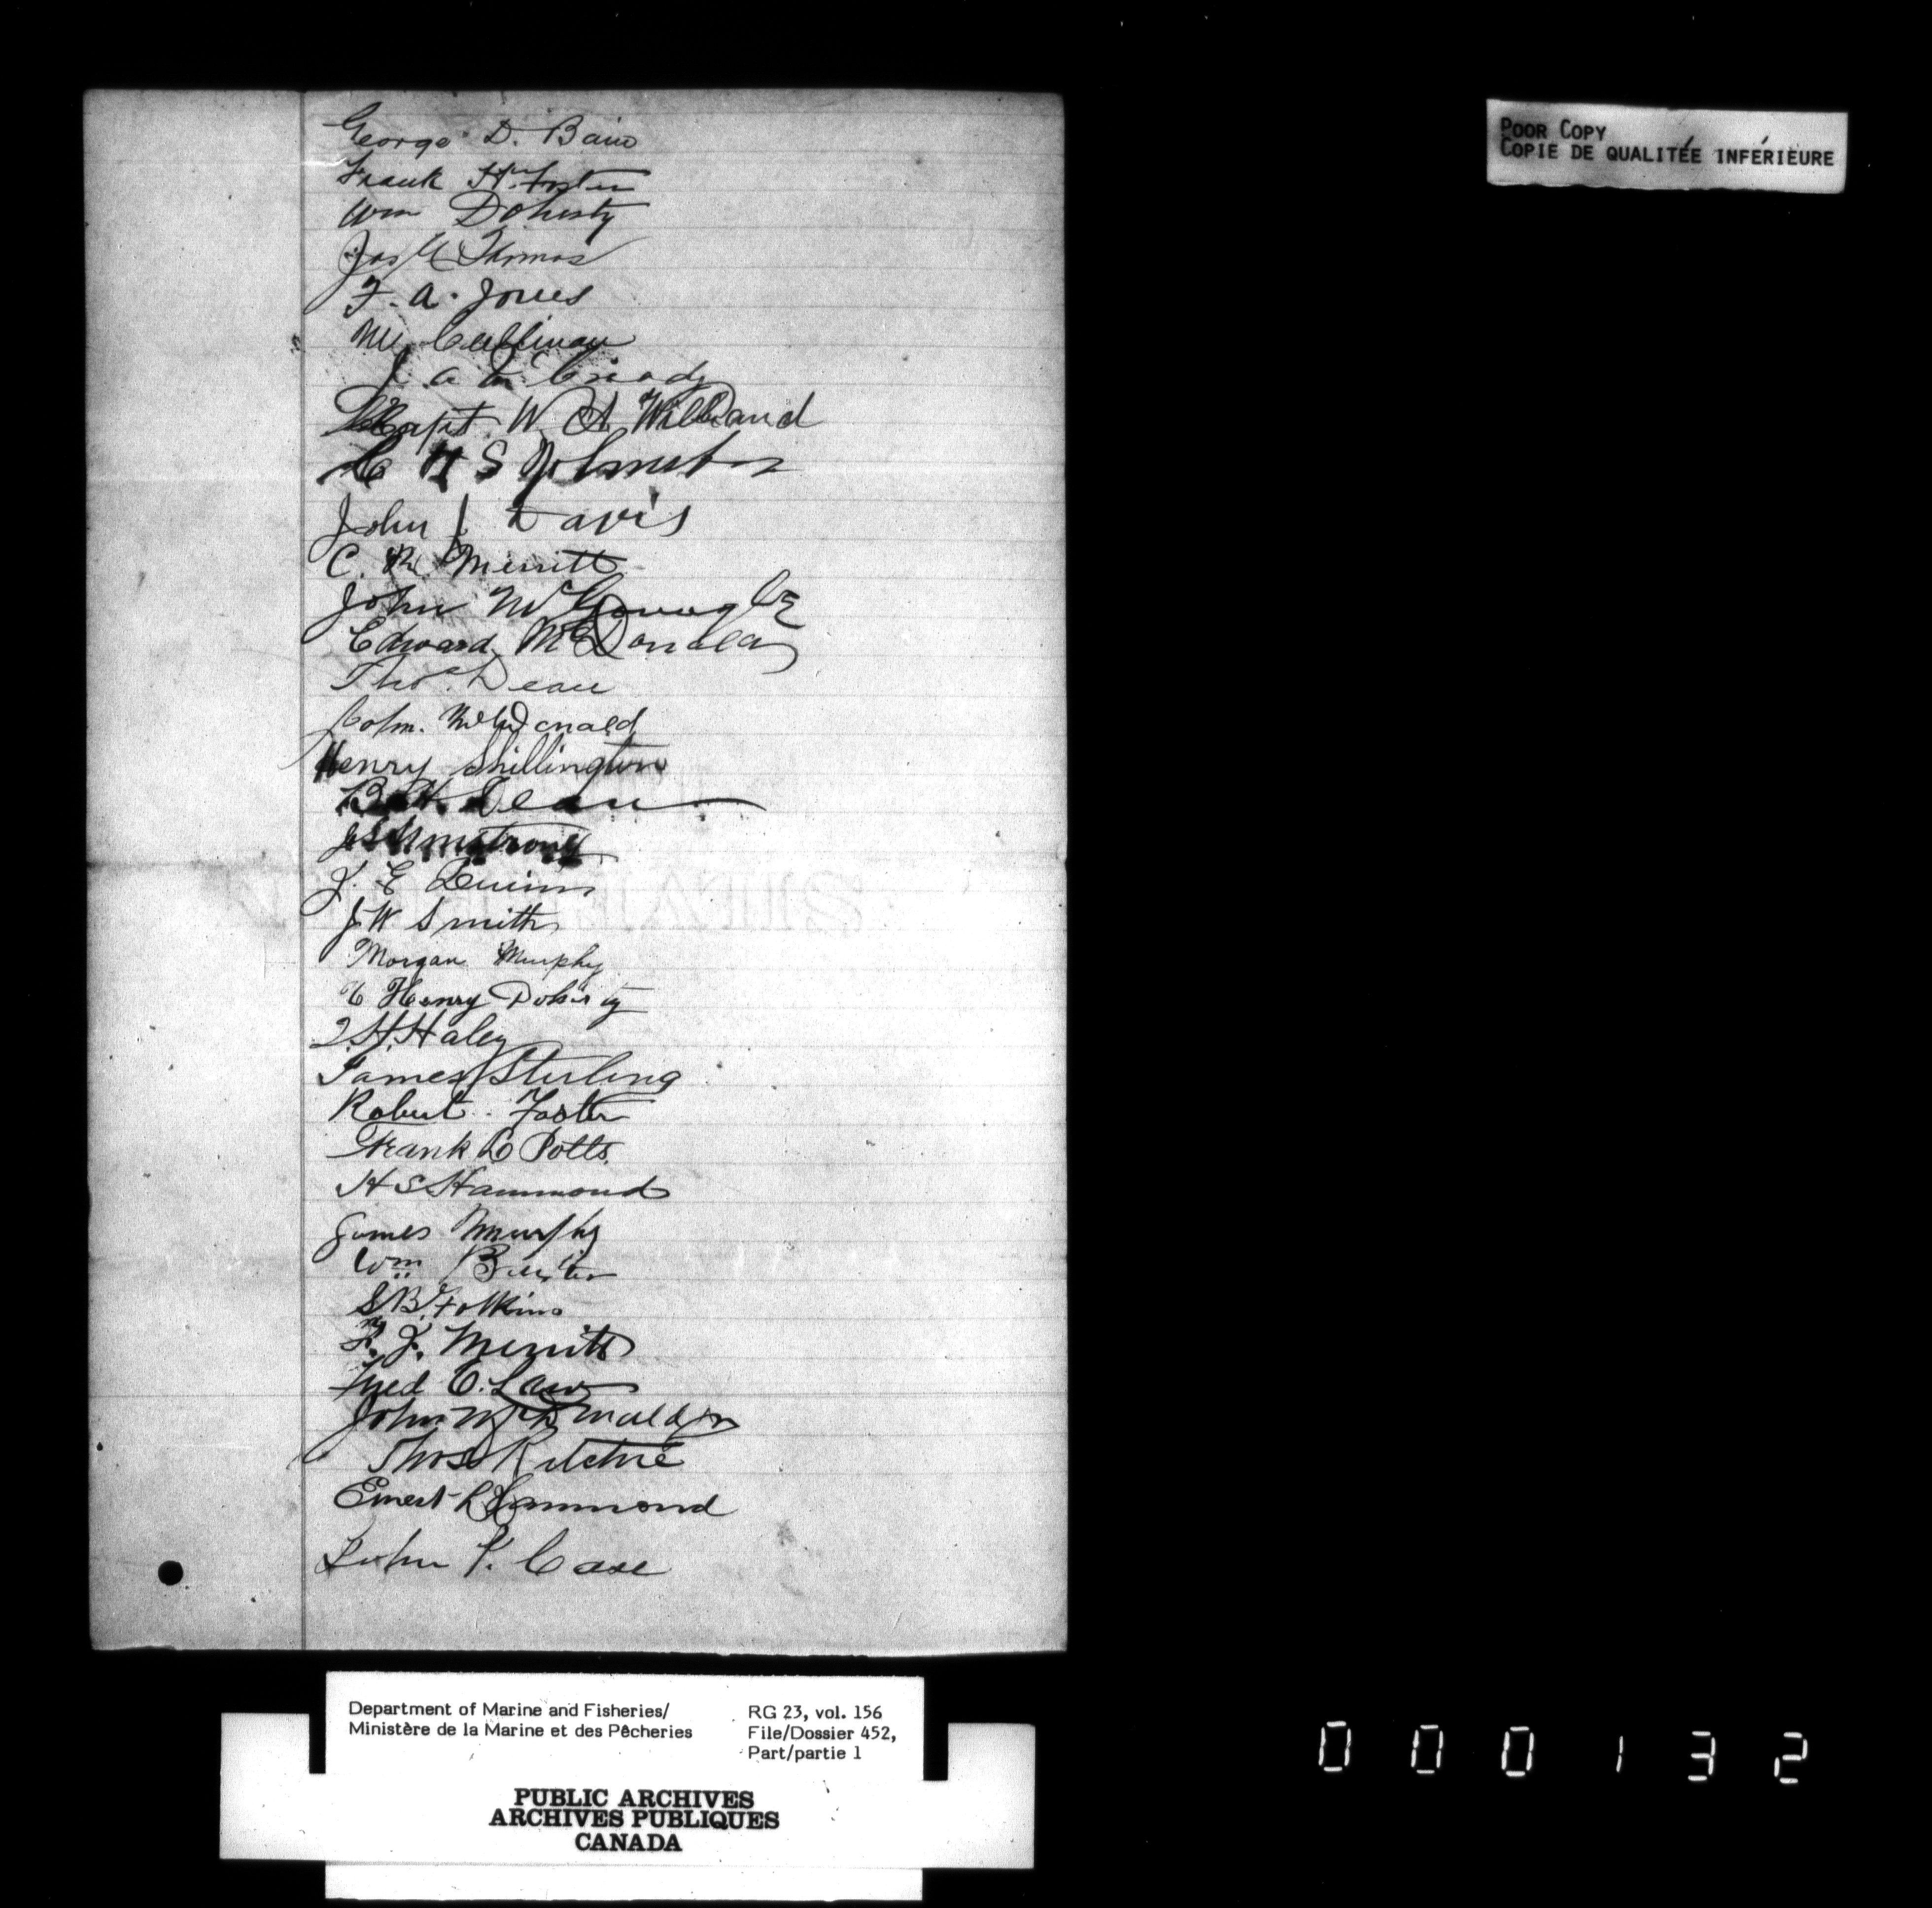 George D. Bain
Frank H. Foster
Wm Doherty
Jas Thomas
F. A. Jones
Cullinan
J. A.
Capt. W. A. Williand
H S Johnston
John Davis
C. R. Merritt
John
Edward McDonald
Thos. Dean
McDonald
Henry Shillington
B. H. Dean
J S Armstrong
J. E Quinn
J. W Smith
Morgan Murphy
Henry Doherty
H. Haley
James Sterling
Robert Foster
Frank Potts.
H S Hammond
James Murphy
Wm
S. B. Folkins
F. J. Merritt
Fred C. Law
John McDonald Jr
Thos Ritchie
Ernest Hammond
John Case
POOR COPY
COPIE DE QUALITÉE INFÉRIEURE
Department of Marine and Fisheries/
Ministère de la Marine et des Pêcheries
RG 23, vol. 156
File/Dossier 452,
Part/partie 1
PUBLIC ARCHIVES
ARCHIVES PUBLIQUES
CANADA
000132